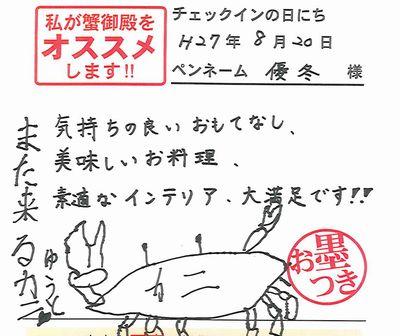 私が蟹御殿を
オススメ
します!!
チェックインの日にち
H27年 8月 20日
ペンネーム 優冬 様
気持ちの良いおもてなし、
美味しいお料理、
素適なインテリア、大満足です!!
また来るカニ
ゆうと
カニ
お墨つき